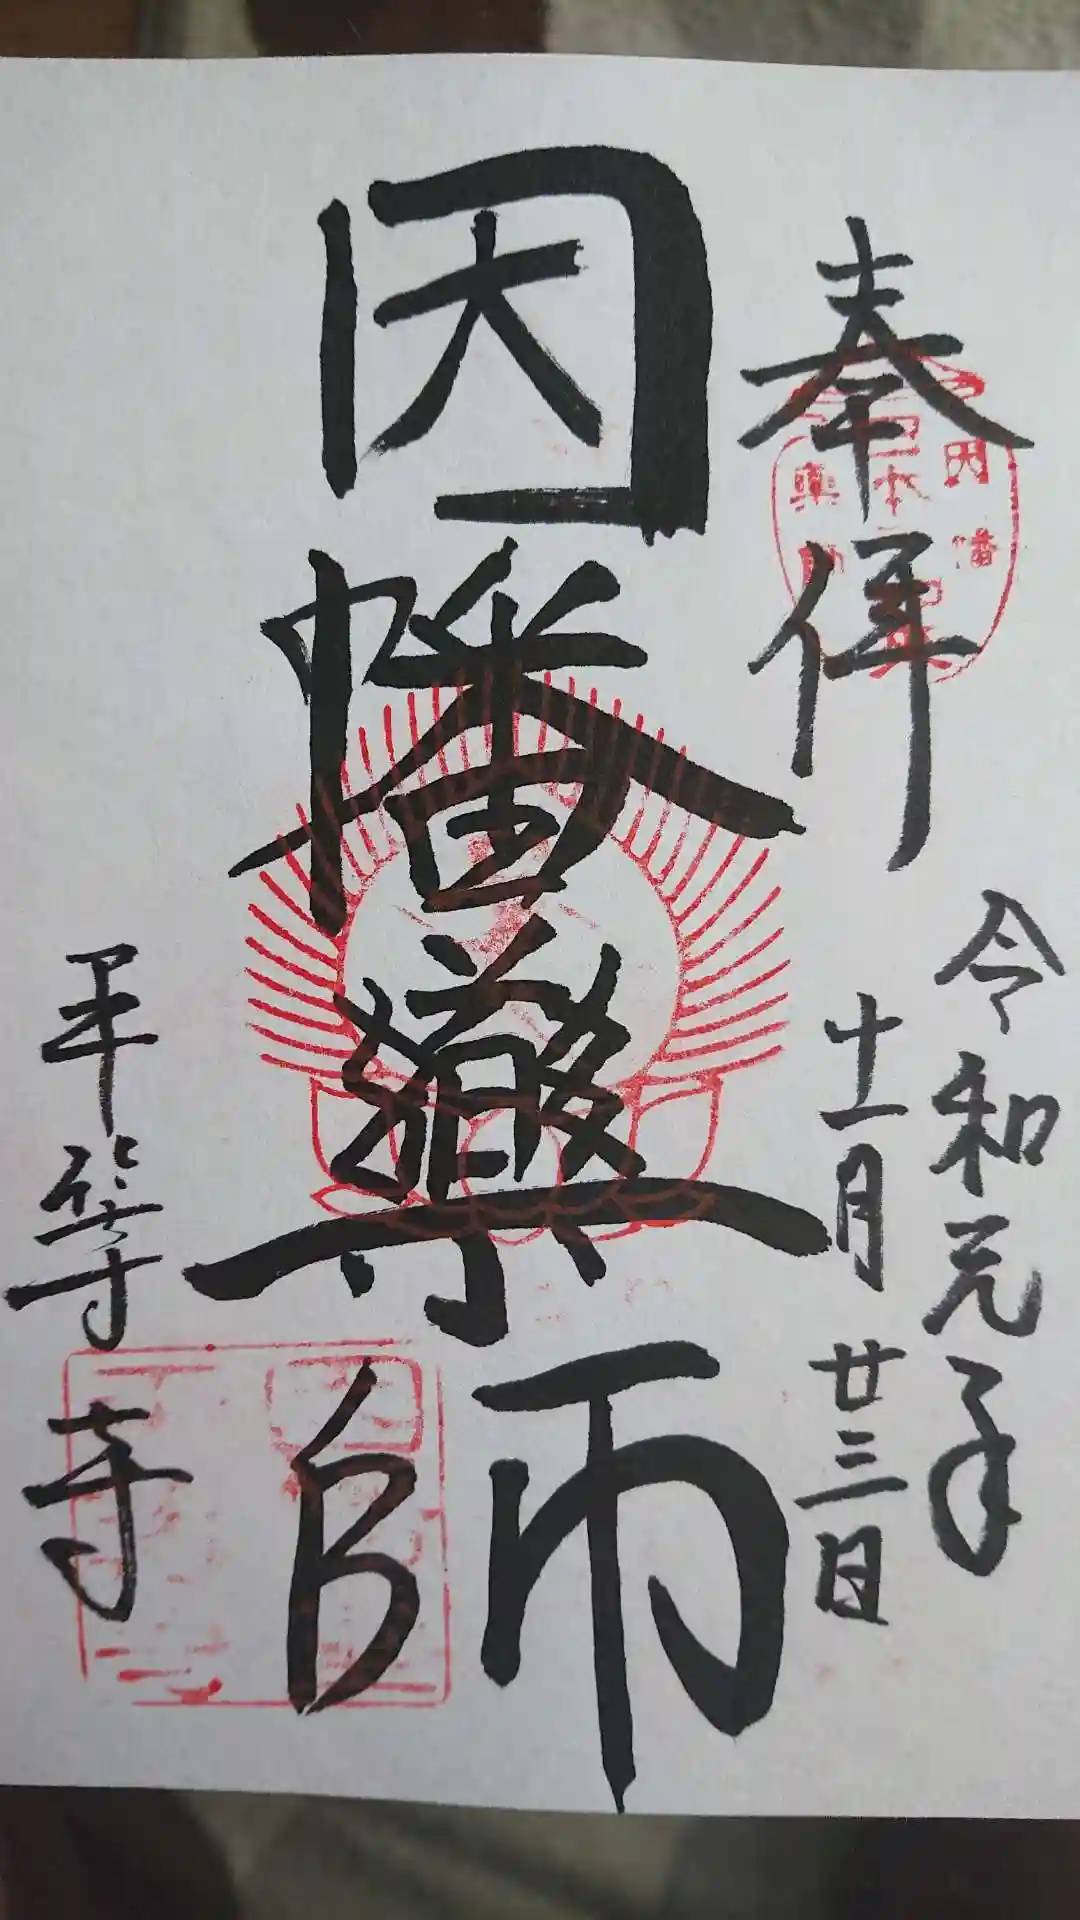 奉拝
因幡
日本三如来
薬師
令和元年
十一月廿三日
因幡薬師
平等寺